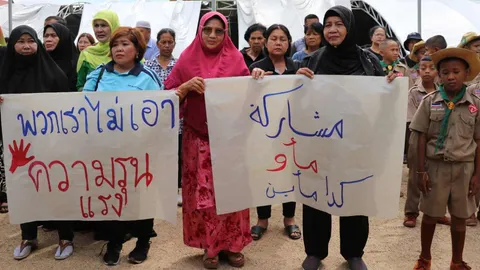 พวกเราไม่เอา
ความรุน
แรง
مشاركة
ماو
كدامأين